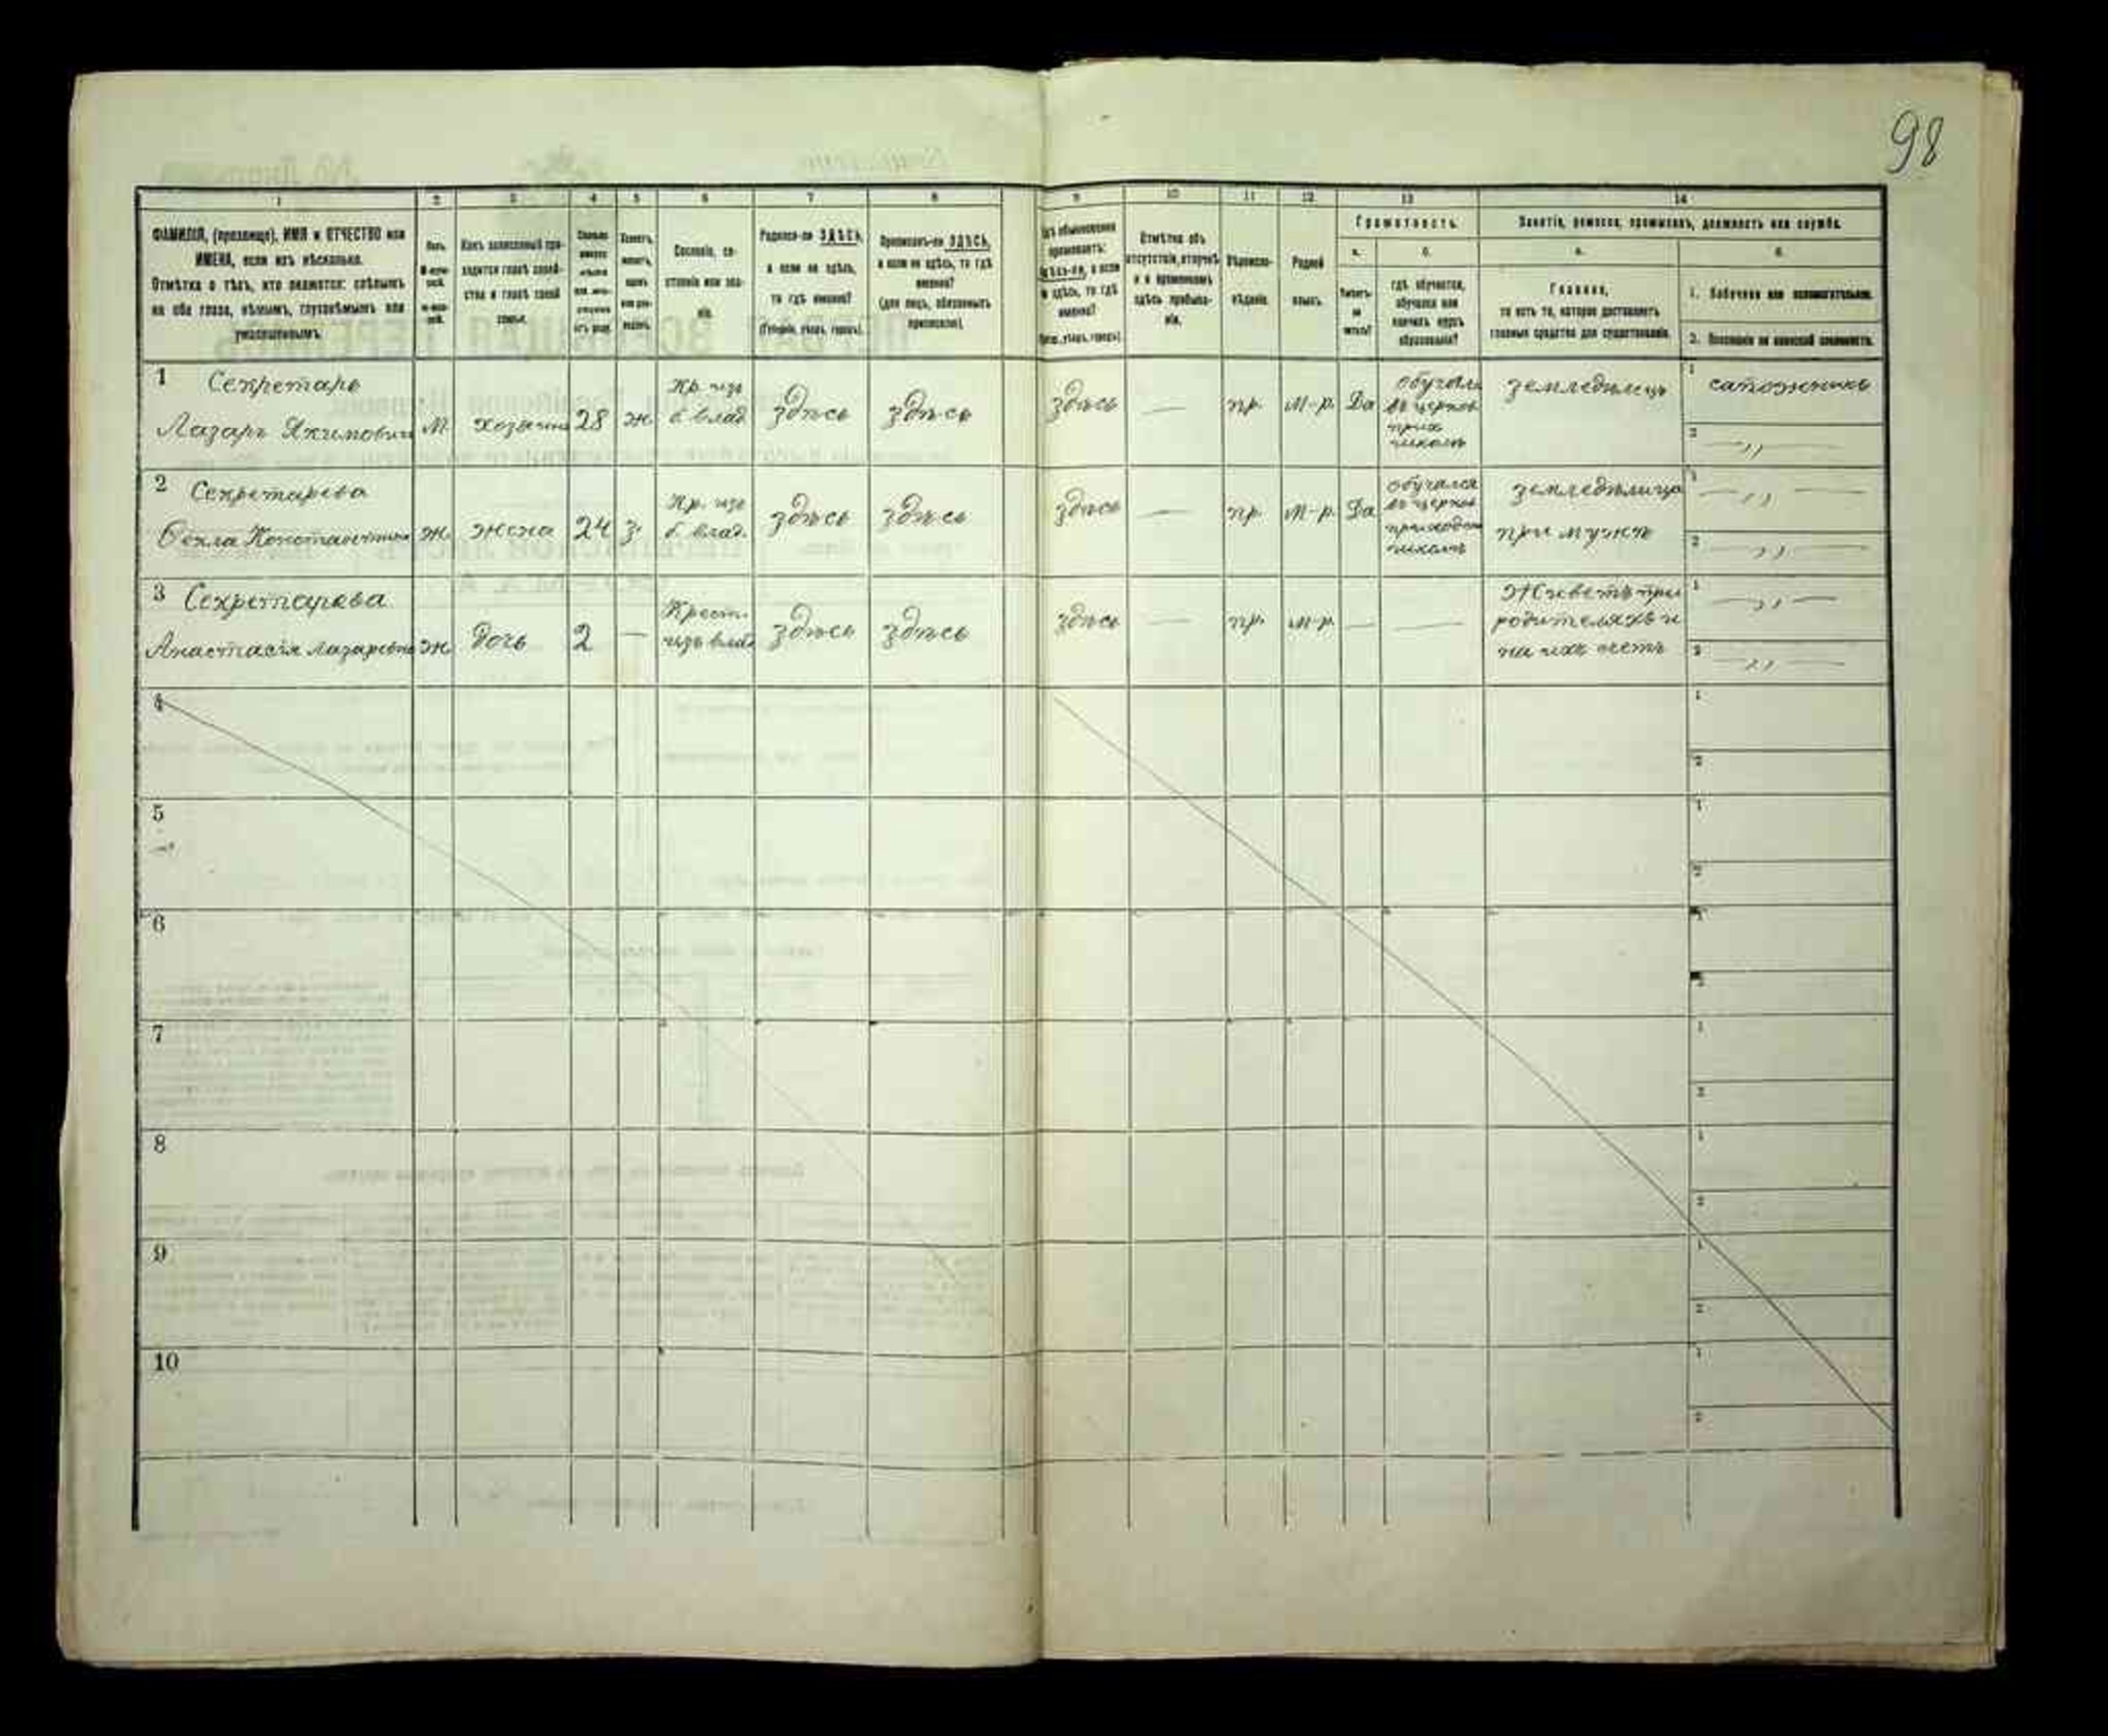 98
1 2 3 4 5 6 7 8 9 10 11 12 13 14
ФАМИЛІЯ, (прозвище), ИМЯ и ОТЧЕСТВО или
ИМЕНА, если ихъ нѣсколько.
Отмѣтка о тѣхъ, кто окажется: слѣпымъ
на оба глаза, нѣмымъ, глухонѣмымъ или
умалишеннымъ.
Полъ.
Какъ записанный при-
ходится главѣ хозяй-
ства и главѣ своей
семьи.
Сословіе, со-
стояніе или зва-
ніе.
Родился-ли ЗДѢСЬ,
а если не здѣсь,
то гдѣ именно?
(Губернія, уѣздъ, городъ).
Приписанъ-ли ЗДѢСЬ,
а если не здѣсь, то гдѣ
именно?
(для лицъ, обязанныхъ
припискою).
Гдѣ обыкновенно
проживаетъ:
здѣсь-ли, а если
не здѣсь, то гдѣ
именно?
(Губер., уѣздъ, городъ).
Отмѣтка объ
отсутствіи, отлучкѣ
и о временномъ
здѣсь пребыва-
ніи.
Вѣроиспо-
вѣданіе.
Родной
языкъ.
Грамотность.
а. б.
Умѣетъ-
ли
читать?
гдѣ обучается,
обучался или
кончилъ курсъ
образованія?
Занятіе, ремесло, промыселъ, должность или служба.
а. б.
Главное,
то есть то, которое доставляетъ
главныя средства для существованія.
1. Побочное или вспомогательное.
2. Положеніе по воинской повинности.
1 Секретарь
Лазарь Якимович м хозяинъ 28 ж Кр. изъ
б. влад здѣсь здѣсь здѣсь — пр. м-р. Да обучался
въ церков
прих
школѣ землѣделецъ 1 сапожникъ
2 — ,, —
2 Секретарева
Ѳекла Константинов ж. жена 24 з. Кр. изъ
б. влад. здѣсь здѣсь здѣсь — пр. м-р. Да обучался
въ церков
приходск
школѣ земледѣлица
при мужѣ 1 — ,, —
2 — ,, —
3 Секретарева
Анастасія Лазаревна ж дочь 2 — Крест.
изъ влад здѣсь здѣсь здѣсь — пр. м-р. — — Живетъ при
родителяхъ и
на ихъ счетъ 1 — ,, —
2 — ,, —
4 1
2
5 1
2
6 1
2
7 1
2
8 1
2
9 1
2
10 1
2